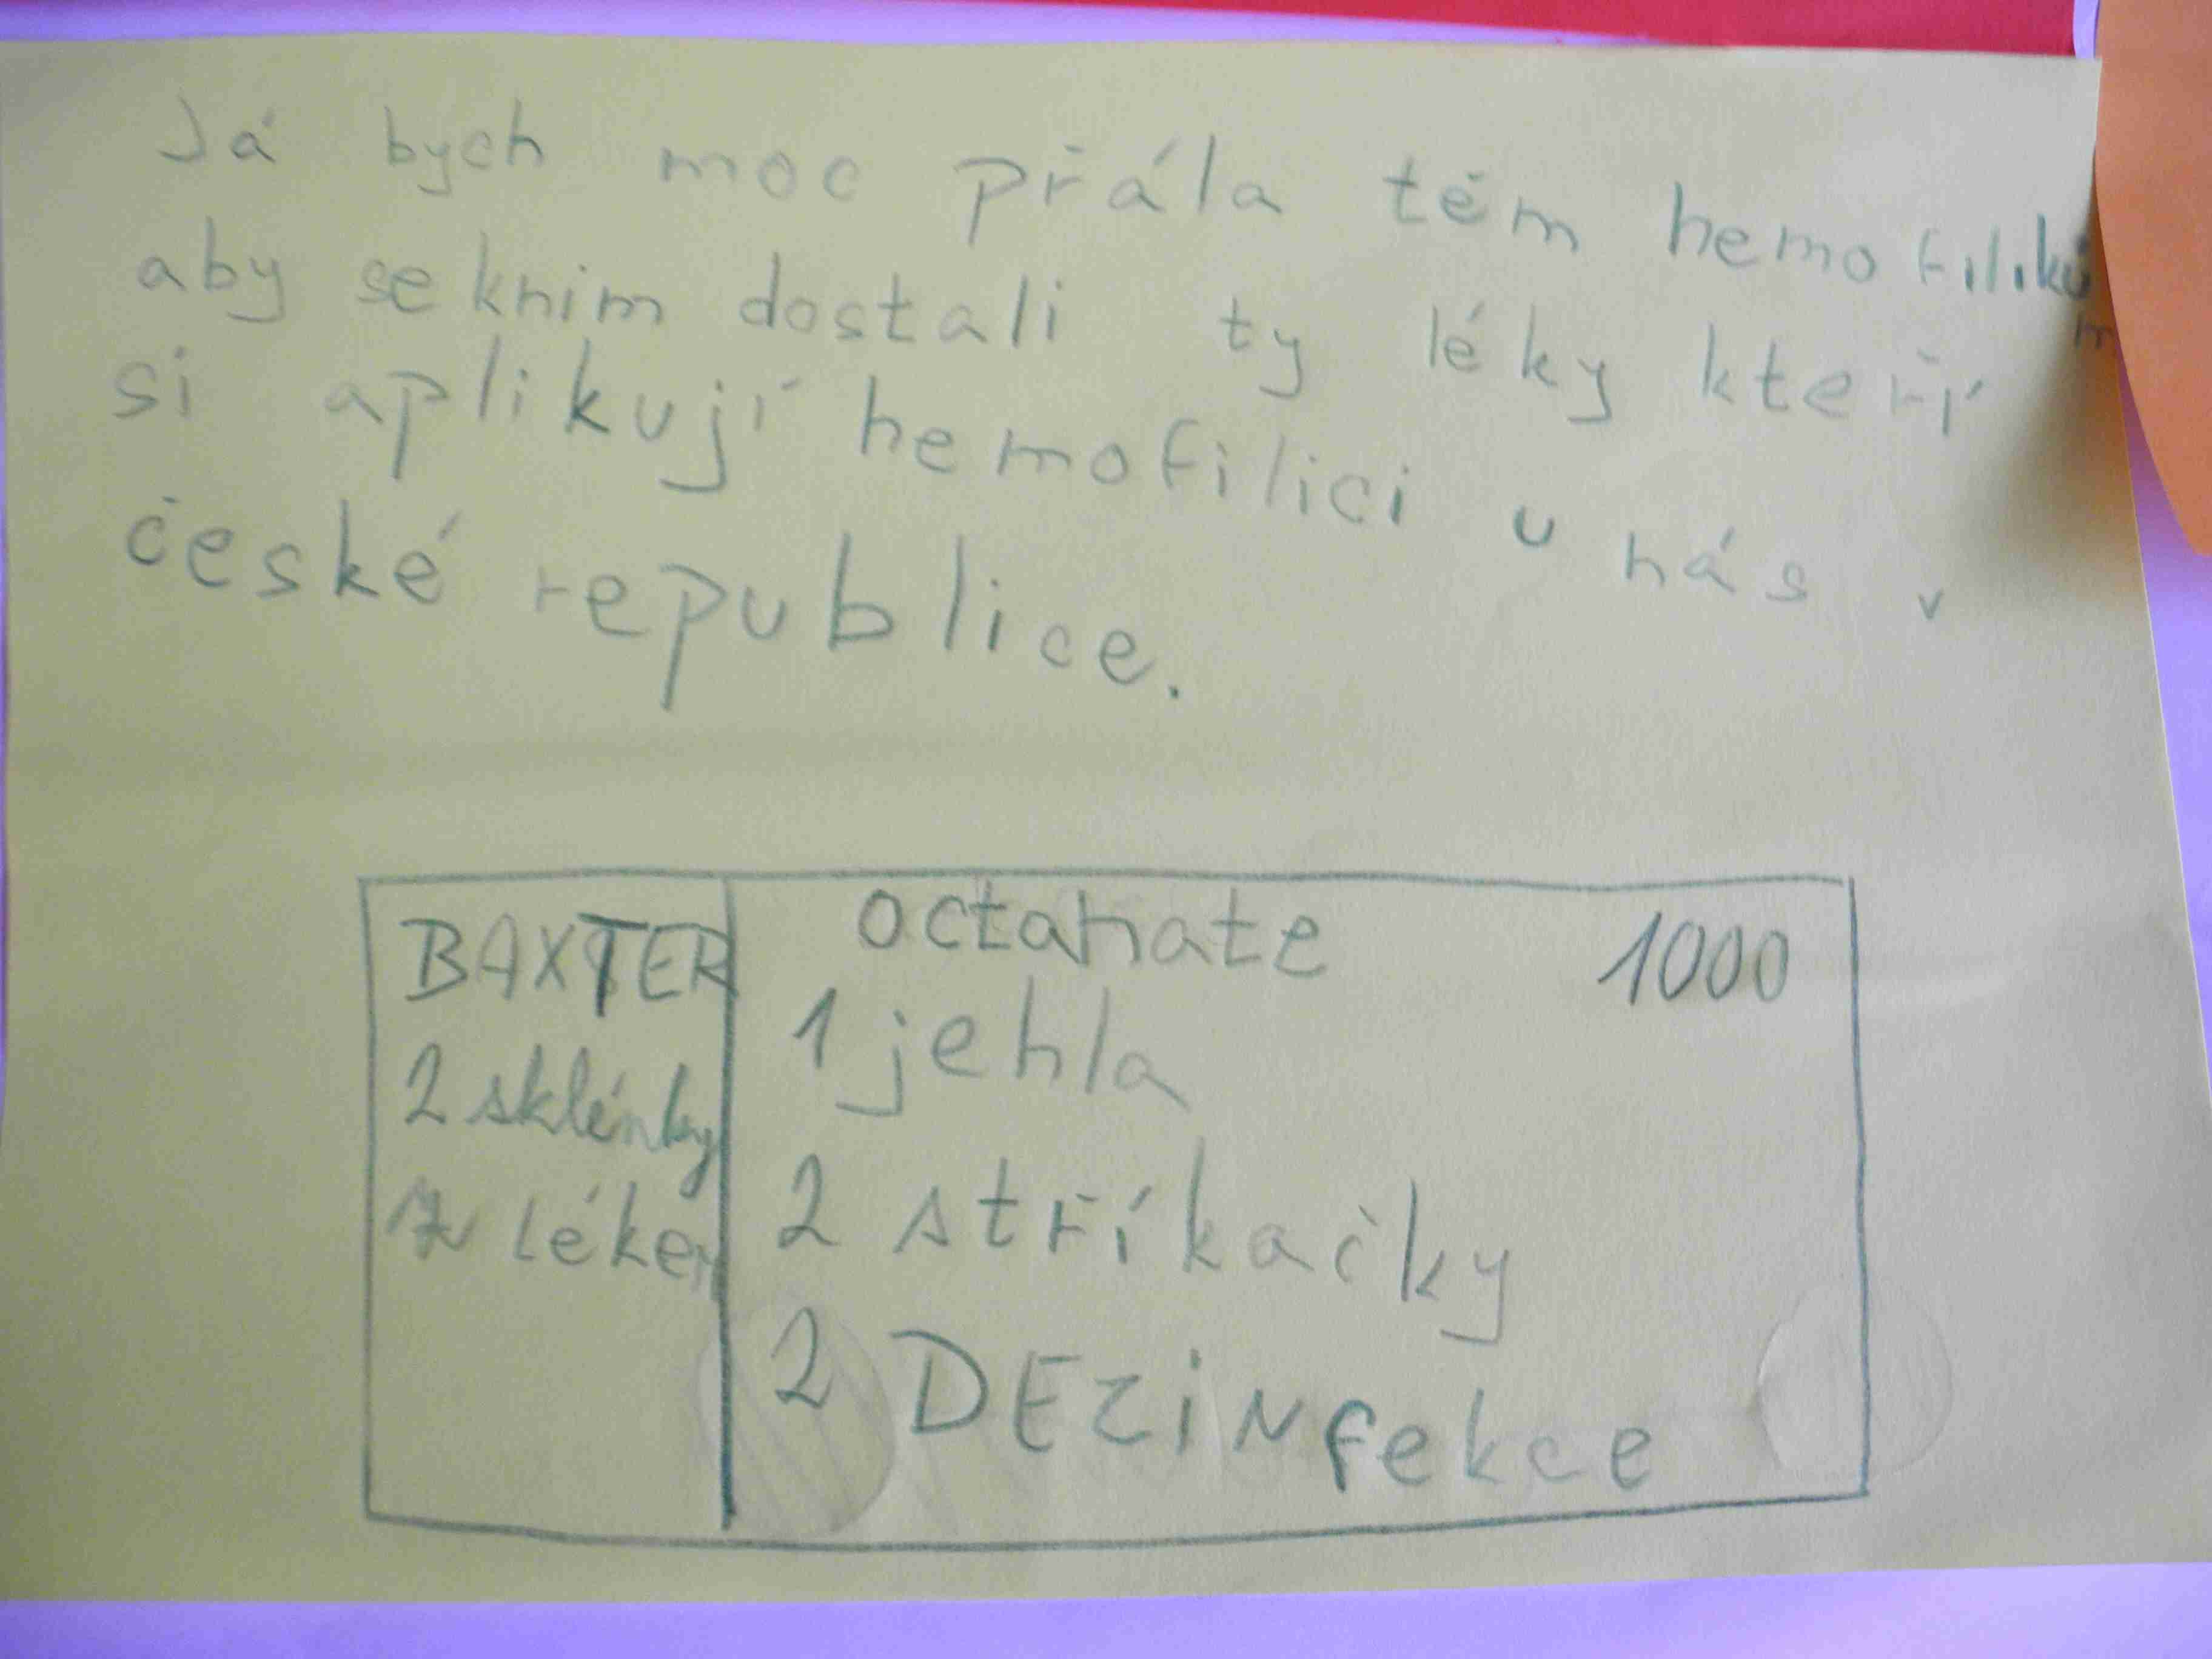 Já bych moc přála těm hemofiliků
m
aby se knim dostali ty léky kteří
si aplikují hemofilici u nás v
české republice.
BAXTER
2 sklénky
z lékem
octanate 1000
1 jehla
2 stříkačky
2 DEZiNfekce